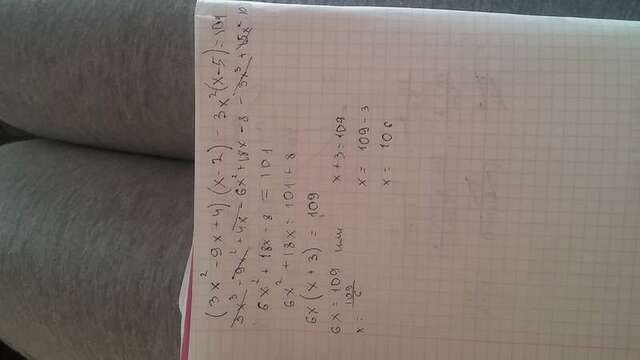 (3x² - 9x + 4)(x - 2) - 3x²(x - 5) = 101
3x³ - 9x² + 4x - 6x² + 18x - 8 - 3x³ + 15x² 10
6x² + 18x - 8 = 101
6x² + 18x = 101 + 8
6x(x + 3) = 109
6x = 109 или x + 3 = 109
x = 109/6 x = 109 - 3
x = 106